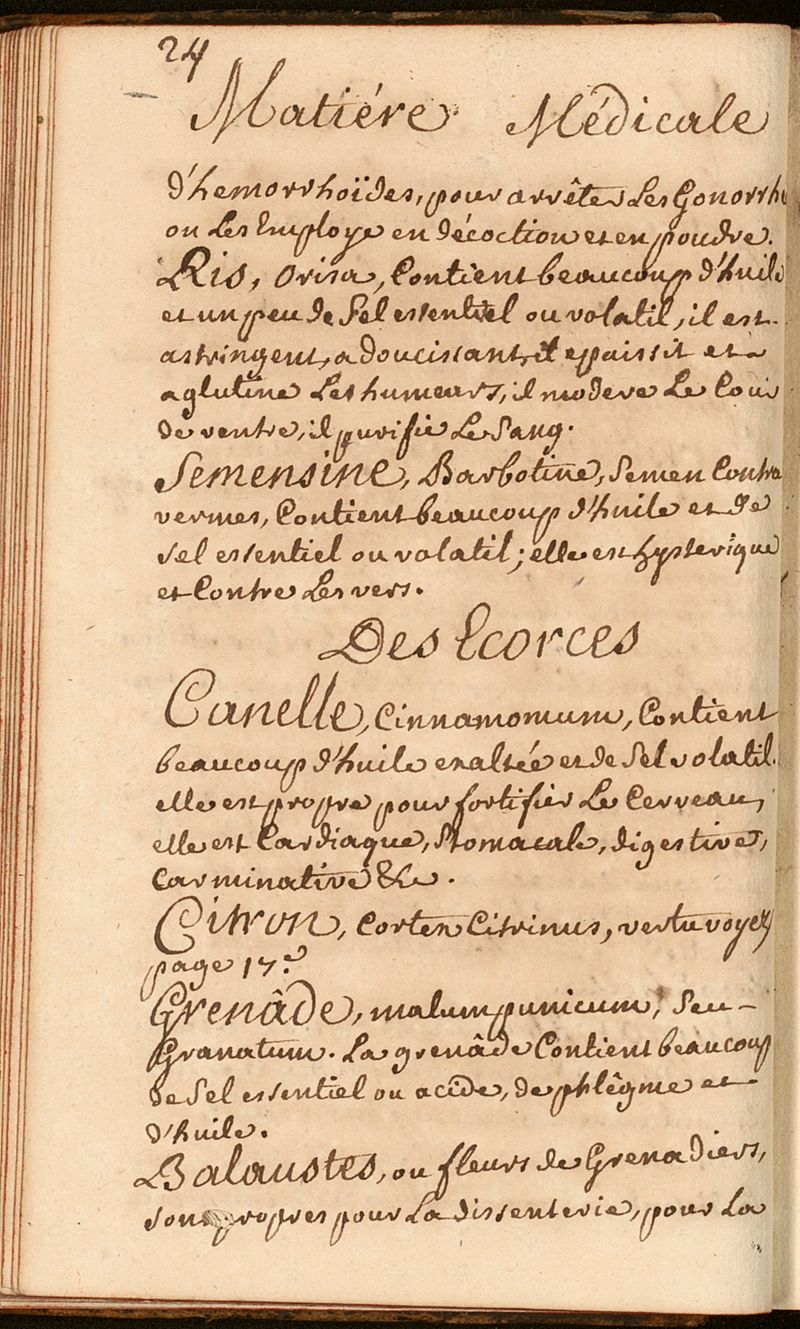 24
Matiére Médicale
d'hemorrhoïdes, pour arrêter Les Gonorrh
on Les Employe en décoction et en poudre.
Ris, orisa, Contient beaucoup d'huile
et un peu de Sel essentiel ou volatil, il est
astringent, adoucissant, il epaissit et
aglutine Les humeurs, il modere Le Cour
de ventre, il purifie Le Sang.
Semensine, Barbotine, Semen Contra
vermes, Contient beaucoup d'huile et de
sel essentiel ou volatil; elle est hysterique
et Contre Les vers.
Des Ecorces
Canelle, Cinnamomum, Contient
beaucoup d'huile exaltée et de Sel volatil.
elle est propre pour fortifier Le Cerveau,
elle est Cardiaque, Stomacale, digestive,
Carminative &c.
Citron, Cortex Citrinus, vertu voyez
page 17.e
Grenâde, malum punicum, Seu-
Granatum. La grenâde Contient beaucoup
de Sel essentiel ou acide, de phlêgme et
d'huile.
Balaustes, ou fleurs de Grenadiers,
sont propres pour La dissenterie, pour La